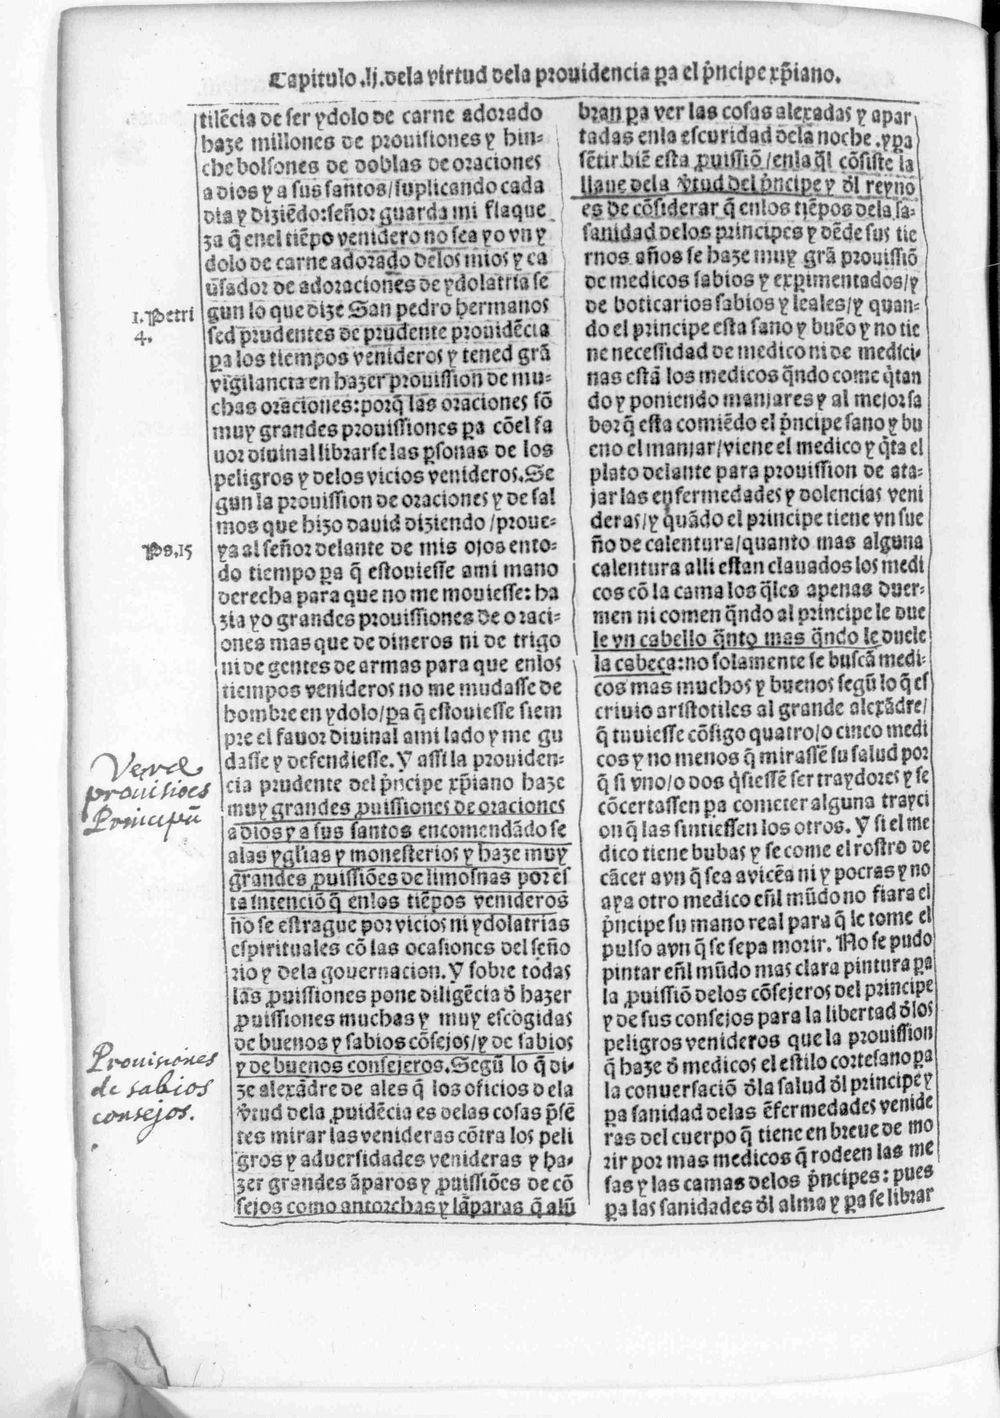 Capitulo .lj. dela virtud dela prouidencia ꝑa el p̃ncipe xp̃iano.
tilẽcia de ser ydolo de carne adorado
haze millones de prouisiones y hin-
che bolsones de doblas de oraciones
a dios y a sus santos/suplicando cada
dia y diziẽdo: señor guarda mi flaque
za q̃ enel tiẽpo venidero no sea yo vn y
dolo de carne adorado delos mios y ca
ũsador de adoraciones de ydolatria se
gun lo que dize San pedro hermanos
sed prudentes de prudente prouidẽcia
ꝑa los tiempos venideros y tened grã
vigilancia en hazer prouission de mu-
chas oraciones: porq̃ las oraciones sõ
muy grandes prouissiones ꝑa cõel fa
uor diuinal librarse las ꝑsonas de los
peligros y delos vicios venideros. Se
gun la prouission de oraciones y de sal
mos que hizo dauid diziendo/proue-
ya al señor delante de mis ojos ento-
do tiempo ꝑa q̃ estouiesse ami mano
derecha para que no me mouiesse: ha
zia yo grandes prouissiones de oraci-
ones mas que de dineros ni de trigo
ni de gentes de armas para que enlos
tiempos venideros no me mudasse de
hombre en ydolo/ꝑa q̃ estouiesse siem
pre el fauor diuinal ami lado y me gu
dasse y defendiesse. Y assi la prouiden-
cia prudente del p̃ncipe xp̃iano haze
muy grandes ꝓuissiones de oraciones
a dios y a sus santos encomendãdo se
alas ygl̃ias y monesterios y haze muy
grandes ꝓuissiões de limosnas por es
ta intenciõ q̃ enlos tiẽpos venideros
ño se estrague por vicios ni ydolatrias
espirituales cõ las ocasiones del seño
rio y dela gouernacion. Y sobre todas
las ꝓuissiones pone diligẽcia ð hazer
ꝓuissiones muchas y muy escogidas
de buenos y sabios cõsejos/y de sabios
y de buenos consejeros. Segũ lo q̃ di-
ze alexãdre de ales q̃ los oficios dela
ṽtud dela ꝓuidẽcia es delas cosas p̃sẽ
tes mirar las venideras cõtra los peli
gros y aduersidades venideras y ha-
zer grandes ãparos y ꝓuissiões de cõ
sejos como antorchas y lãparas q̃ alũ
1. Petri
4.
Ps. 15
Veræ
prouisiões
Principũ
Prouisiones
de sabios
consejos.
bran ꝑa ver las cosas alexadas y apar
tadas enla escuridad dela noche. y ꝑa
sẽtir biẽ esta ꝓuissiõ/enla q̃l cõsiste la
llaue dela ṽtud del p̃ncipe y ðl reyno
es de cõsiderar q̃ enlos tiẽpos dela sa-
sanidad delos principes y dẽde sus tie
rnos años se haze muy grã prouissiõ
de medicos sabios y exꝑimentados/y
de boticarios sabios y leales/y quan-
do el principe esta sano y buẽo y no tie
ne necessidad de medico ni de medici-
nas estã los medicos q̃ndo come q̃tan
do y poniendo manjares y al mejor sa
bor q̃ esta comiẽdo el p̃ncipe sano y bu
eno el manjar/viene el medico y q̃ta el
plato delante para prouission de ata-
jar las enfermedades y dolencias veni
deras/y quãdo el principe tiene vn sue
ño de calentura/quanto mas alguna
calentura alli estan clauados los medi
cos cõ la cama los q̃les apenas duer-
men ni comen q̃ndo al principe le due
le vn cabello q̃nto mas q̃ndo le duele
la cabeça: no solamente se buscã medi-
cos mas muchos y buenos segũ lo q̃ es
criuio aristotiles al grande alexãdre/
q̃ tuuiesse cõsigo quatro/o cinco medi
cos y no menos q̃ mirassẽ su salud por
q̃ si vno/o dos q̃siessẽ ser traydores y se
cõcertassen ꝑa cometer alguna trayci
on q̃ las sintiessen los otros. Y si el me
dico tiene bubas y se come el rostro de
cãcer avn q̃ sea avicẽa ni ypocras y no
aya otro medico eñl mũdo no fiara el
p̃ncipe su mano real para q̃ le tome el
pulso avn q̃ se sepa morir. No se pudo
pintar eñl mũdo mas clara pintura ꝑa
la ꝓuissiõ delos cõsejeros del principe
y de sus consejos para la libertad ðlos
peligros venideros que la prouission
q̃ haze ð medicos el estilo cortesano ꝑa
la conuersaciõ ðla salud ðl principe y
ꝑa sanidad delas ẽfermedades venide
ras del cuerpo q̃ tiene en breue de mo
rir por mas medicos q̃ rodeen las me
sas y las camas delos p̃ncipes: pues
ꝑa las sanidades ðl alma y ꝑa se librar